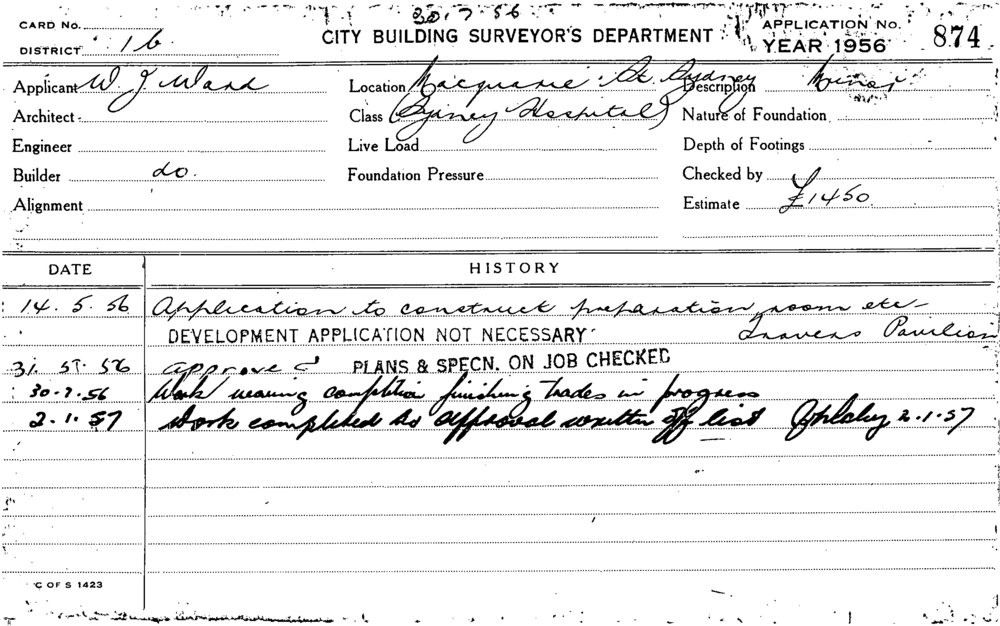 30.7.56
CARD No.
DISTRICT 16
CITY BUILDING SURVEYOR'S DEPARTMENT
APPLICATION No.
YEAR 1956
874
Applicant W J Ward
Location Macquarie St Sydney
Description Minor
Architect
Class (Sydney Hospital)
Nature of Foundation
Engineer
Live Load
Depth of Footings
Builder do.
Foundation Pressure
Checked by
Alignment
Estimate £1450
DATE
HISTORY
14.5.56 Application to construct preparation room etc
DEVELOPMENT APPLICATION NOT NECESSARY Travers Pavilion
31.5.56 approved PLANS & SPECN. ON JOB CHECKED
30.7.56 Work nearing completion finishing trades in progress
2.1.57 Work completed to approval written off list 2.1.57
C OF S 1423